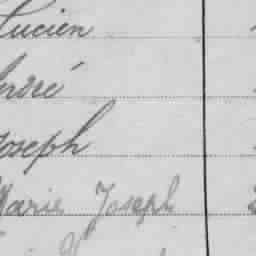 Lucien
André
Joseph
Marie Joseph